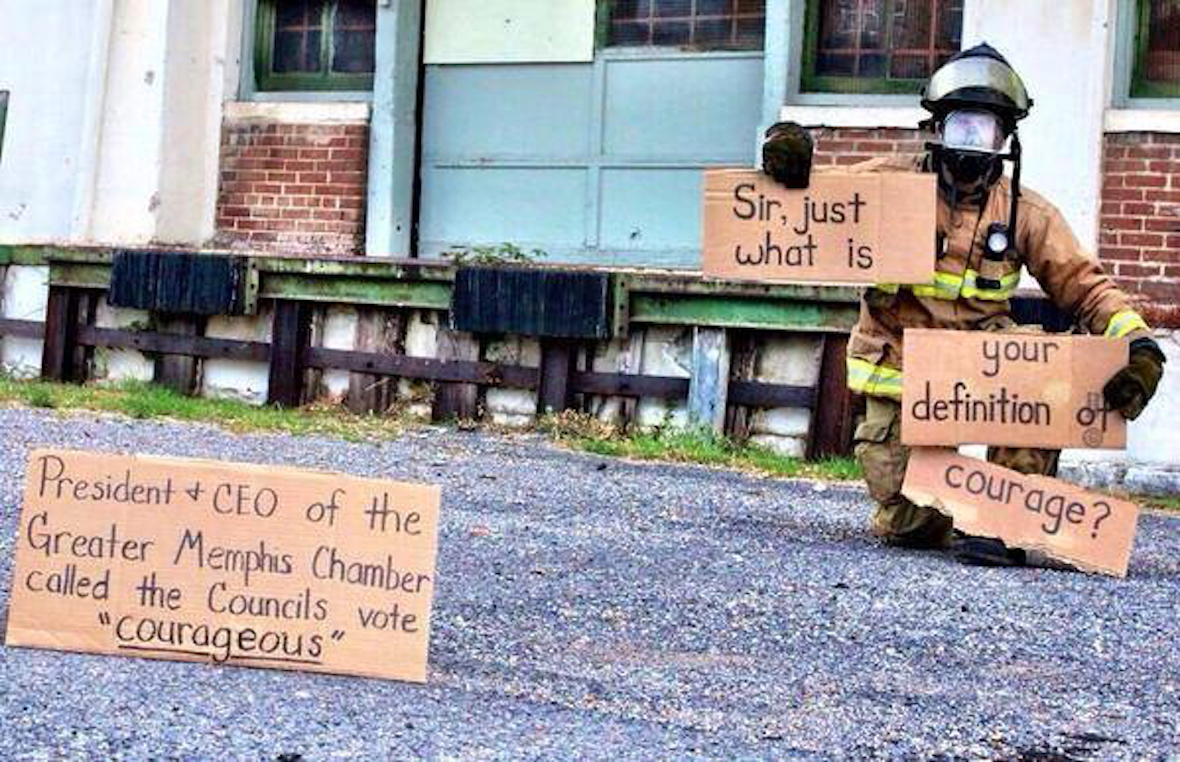 President + CEO of the
Greater Memphis Chamber
called the Councils vote
"courageous"
Sir, just
what is
your
definition of
courage?